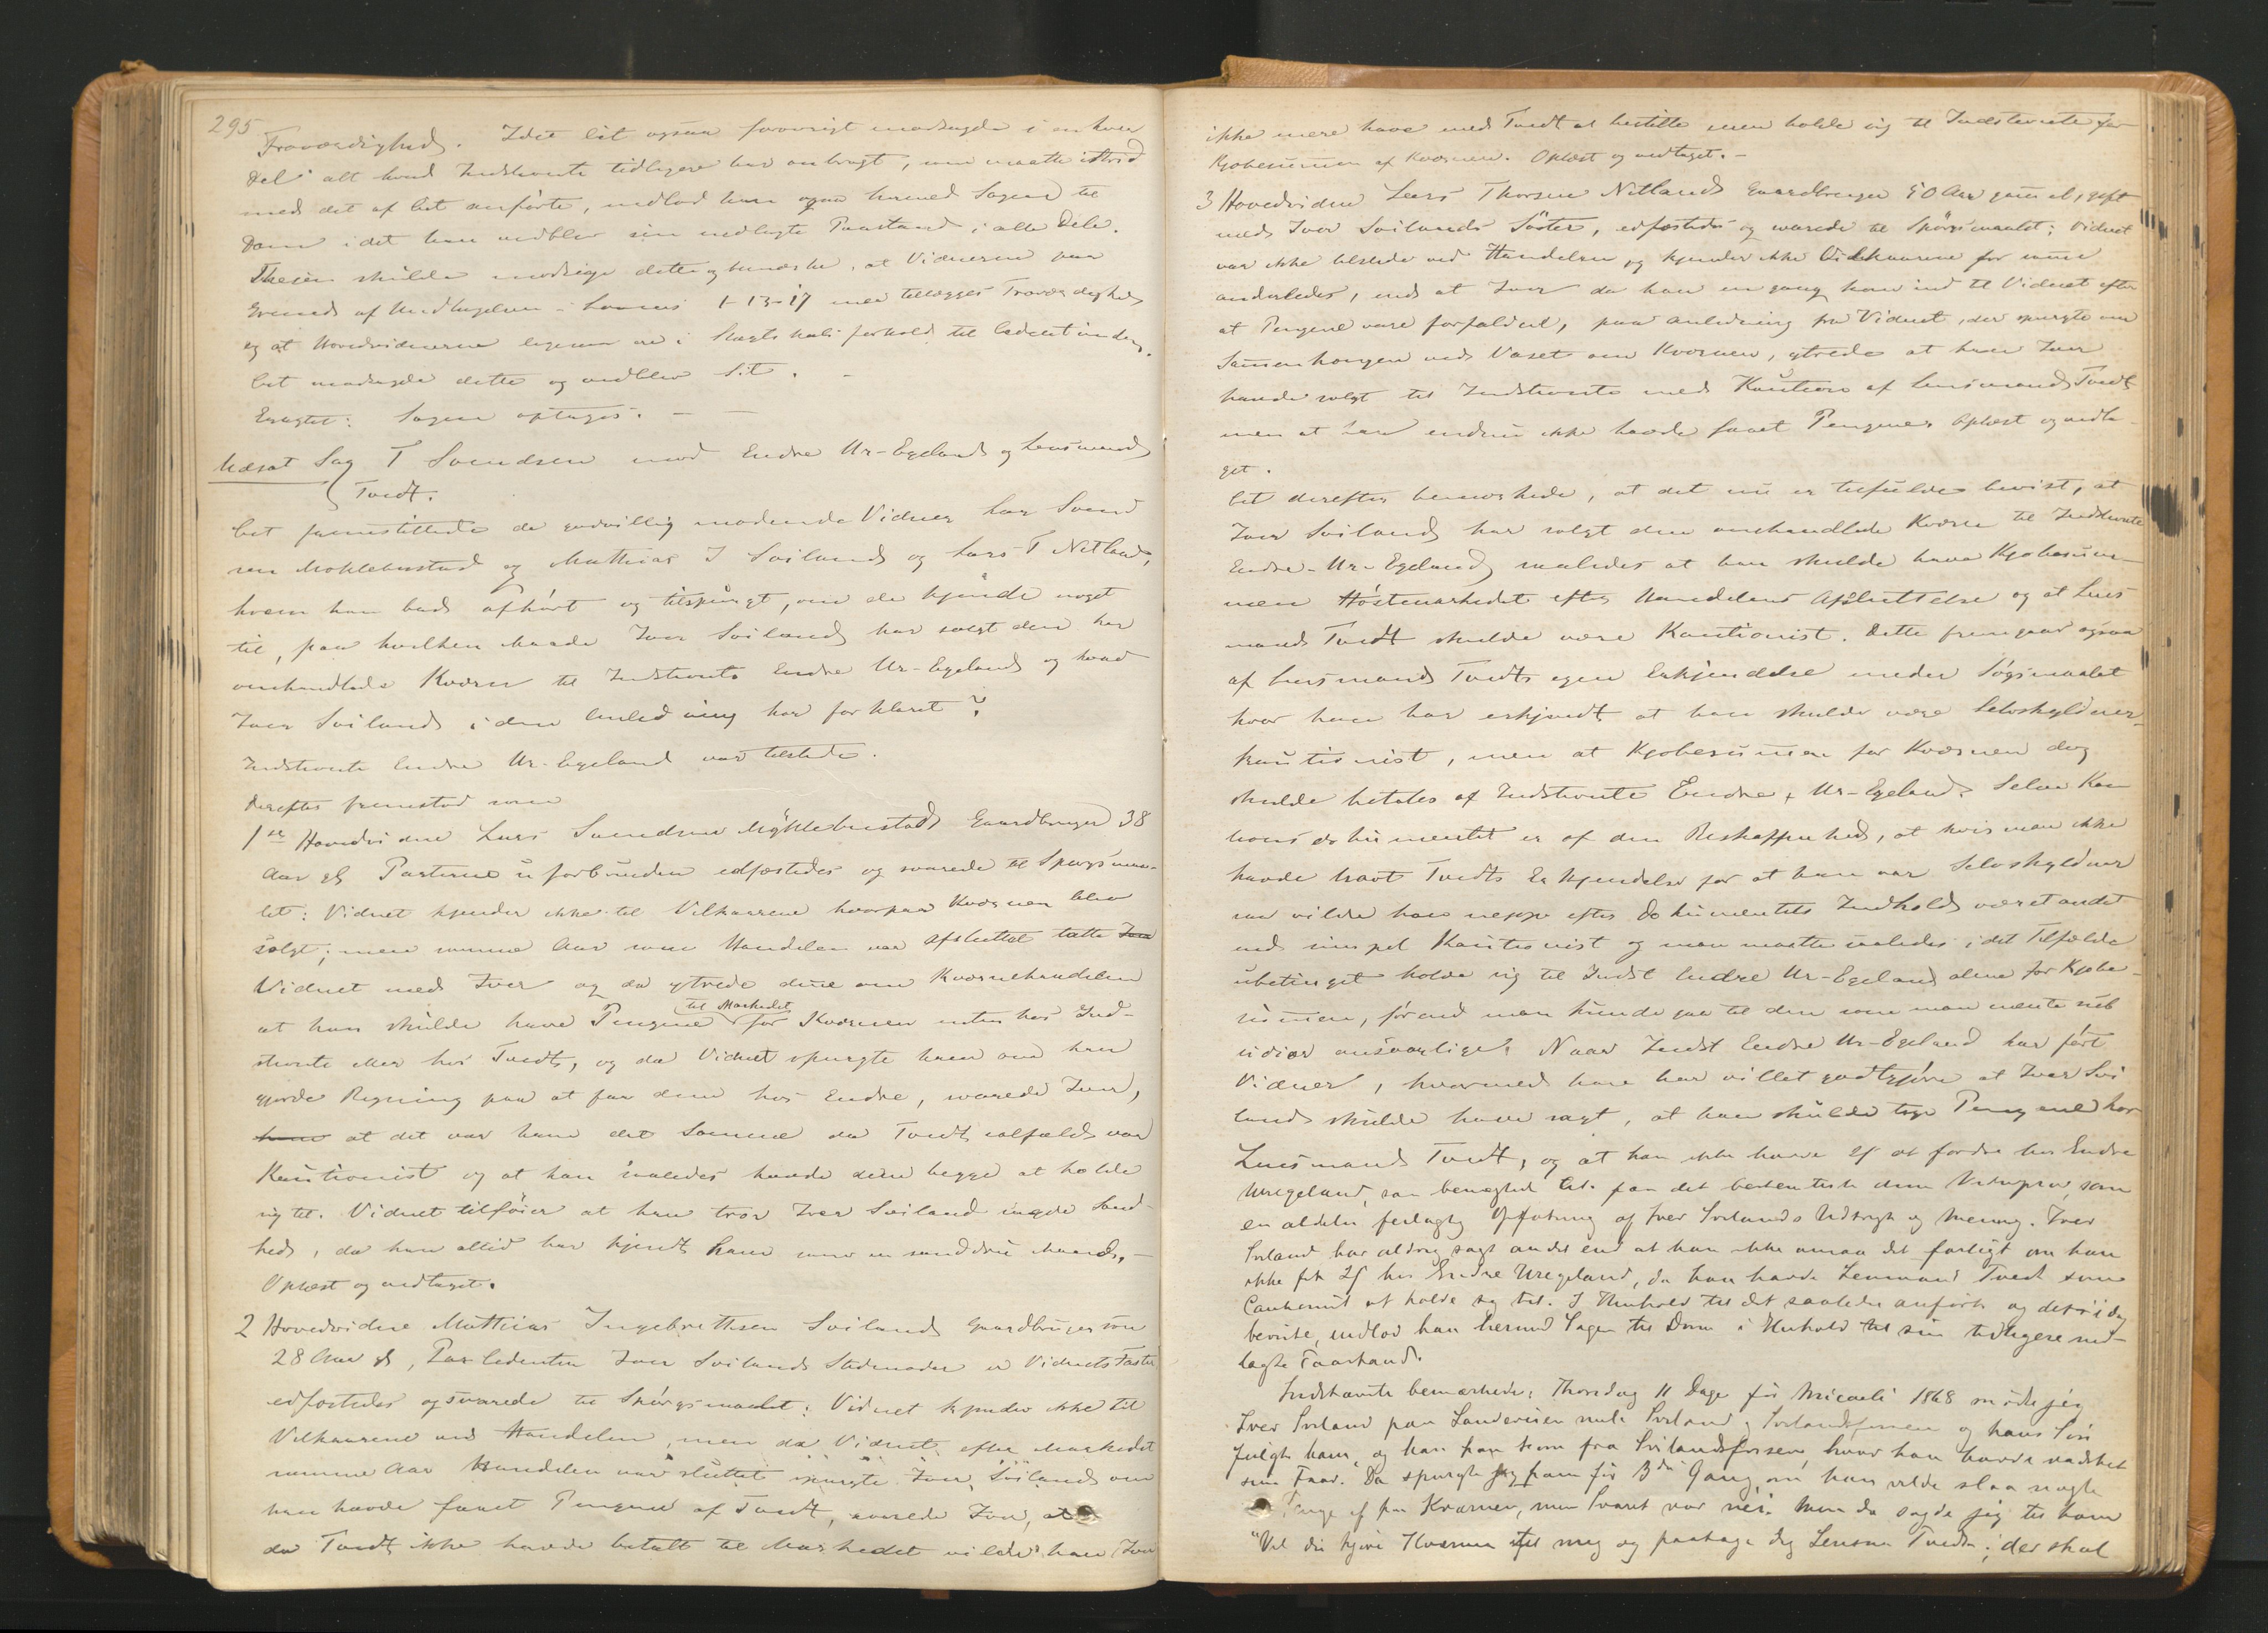 295
Troværdighed. Idet Cit ogsaa forøvrigt modsagde i enhver
Del alt hvad Indstevnte tidligere har anbragt, som maatte istrid
med det af Cit anførte, indlod han ogsaa hermed Sagen til
Dom i det han vedblev sin nedlagte Paastand i alle Dele.
Theien skulde modsige dette og bemærke, at Vidnerne paa
Grund af Undtagelsen i Lovens 1-13-17 maa tillægges Troværdighed
og at Hovedvidnerne ligesom ere i Slægtskabsforhold til
Cit modsagde dette og vedblev Sit. –
Eragtet: Sagen optages. – –
Udsat Sag T Svendsen mod Endre Ur-Egeland og Lensmand
Tvedt.
Cit fremstillede de godvillig mødende Vidner Lars Svend
sen Moklebustad og Mathias I Soiland og Lars T Netland,
hvem han bad afhørt og tilspurgt, om de kjende noget
til, paa hvilken Maade Iver Soiland har solgt den her
omhandlede Kværn til Indstevnte Endre Ur-Egeland og hvad
Iver Soiland i den Anledning har forklaret?
Indstevnte Endre Ur-Egeland var tilstede.
Derefter fremstod som
1ste Hovedvidne Lars Svendsen Myklebustad Gaardbruger 38
Aar gl Parterne uforbunden edfæstedes og svarede til Spørgsmaa-
let: Vidnet kjender ikke til Vilkaarene hvorpaa Kværnen blev
solgt; men samme Aar som Handelen var afsluttet talte Iver
Vidnet med Iver og da ytrede denne om Kværnehandelen
at han skulde have Pengene til Markedet for Kværnen enten hos Ind-
stevnte eller hos Tvedt, og da Vidnet spurgte ham om han
gjorde Regning paa at faa dem hos Endre, svarede Iver,
ham at det var ham det Samme da Tvedt ialfald var
Kautionist og at han saaledes havde dem begge at holde
sig til. Vidnet tilføier at han tror Iver Soiland sagde Sand-
hed, da han altid har kjendt ham som en sanddru Mand. –
Oplæst og vedtaget.
2 Hovedvidne Mathias Ingebrettsen Soiland Gaardbrugersøn
28 Aar gl, Iver Soilands Stedmoder er Vidnets Faster
edfæstedes og svarede til Spørgsmaalet: Vidnet kjender ikke til
Vilkaarene ved Handelen, men da Vidnet efter Markedet
samme Aar Handelen var sluttet spurgte Iver Soiland om
han havde faaet Pengene af Tvedt, svarede Iver, at
da Tvedt ikke havde betalt til Markedet vilde han Iver
ikke mere have med Tvedt at bestille men holde sig til Indstevnte for
Kjøbesummen af Kværnen. Oplæst og vedtaget. –
3 Hovedvidne Lars Thorsen Netland Gaardbruger 50 Aar gammel, gift
med Iver Soilands Søster, edfæstedes og svarede til Spørgsmaalet: Vidnet
var ikke tilstede ved Handelen og kjender ikke Vilkaarene for samme
anderledes, end at Iver da han engang kom ind til Vidnet efter
at Pengene vare forfaldne, paa Anledning fra Vidnet, der spurgte om
Sammenhængen med Væset om Kværnen, ytrede at han Iver
havde solgt til Indstevnte med Kaution af Lensmand Tvedt
men at han endnu ikke havde faaet Pengene. Oplæst og vedta-
get.
Cit derefter bemærkede, at det nu er tilfulde bevist, at
Iver Soiland har solgt den omhandlede Kværn til Indstevnte
Endre Ur-Egeland saaledes at han skulde have Kjøbesum-
men Høstmarkedet efter Handelens Afsluttelse og at Lens
mand Tvedt skulde være Kautionist. Dette fremgaar ogsaa
af Lensmand Tvedts egen Erkjendelse under Søgsmaalet
hvor han har erkjendt at han skulde være Selvskyldner-
kautionist, men at Kjøbesummen for Kværnen dog
skulde betales af Indstevnte Endre Ur-Egeland. Selve Kau
tionsdokumentet er af den Beskaffenhed, at hvis man ikke
havde havt Tvedts Erkjendelse for at han var Selvskyldner
saa vilde han neppe efter Dokumentets Indhold været andet
end simpel Kautionist og man maatte saaledes i det Tilfælde
ubetinget holde sig til Indst Endre Ur-Egeland alene for Kjøbe-
summen, førend man kunde gaa til den som man mente sub
sidiær ansvarlige. Naar Indst Endre Ur-Egeland har ført
Vidner, hvormed han har villet godtgjøre at Iver Soi
land skulde have sagt, at han skulde tage Pengene hos
Lensmand Tvedt, og at han ikke havde 2ß at fordre hos Endre
Uregeland, saa benegted Cit. paa det bestemteste dem Vitnepræv, som
en aldeles feilagtig Opfatning af Iver Soilands Udtryk og Mening. Iver
Soiland har aldrig sagt andet end at han ikke ansaa det farligt om han
ikke fik 2ß hos Endre Uregeland, da han havde Lensmand Tvedt som
Cautionist at holde sig til. I Henhold til det saaledes anførte og det i dag
beviste, indlod han hermed Sagen til Dom i Henhold til sin tidligere ned-
lagte Paastand.
Indstævnte bemærkede: Thorsdag 11 Dage før Micaeli 1868 mødte jeg
Iver Soiland paa Sandereien Soiland og Soilandsfossen og hans Søn
fulgte ham, og han kom fra Soilandsfossen, hvor han havde vadsket
sine Faar. Da spurgte jeg ham for 3die Gang, om han vilde slaa nogle
Penge af paa Kværnen, men Svaret var nei. Men da sagde jeg til ham
"Vil du kjøre Kværnen til mig og paatage dig Lensm Tvedt; der skal